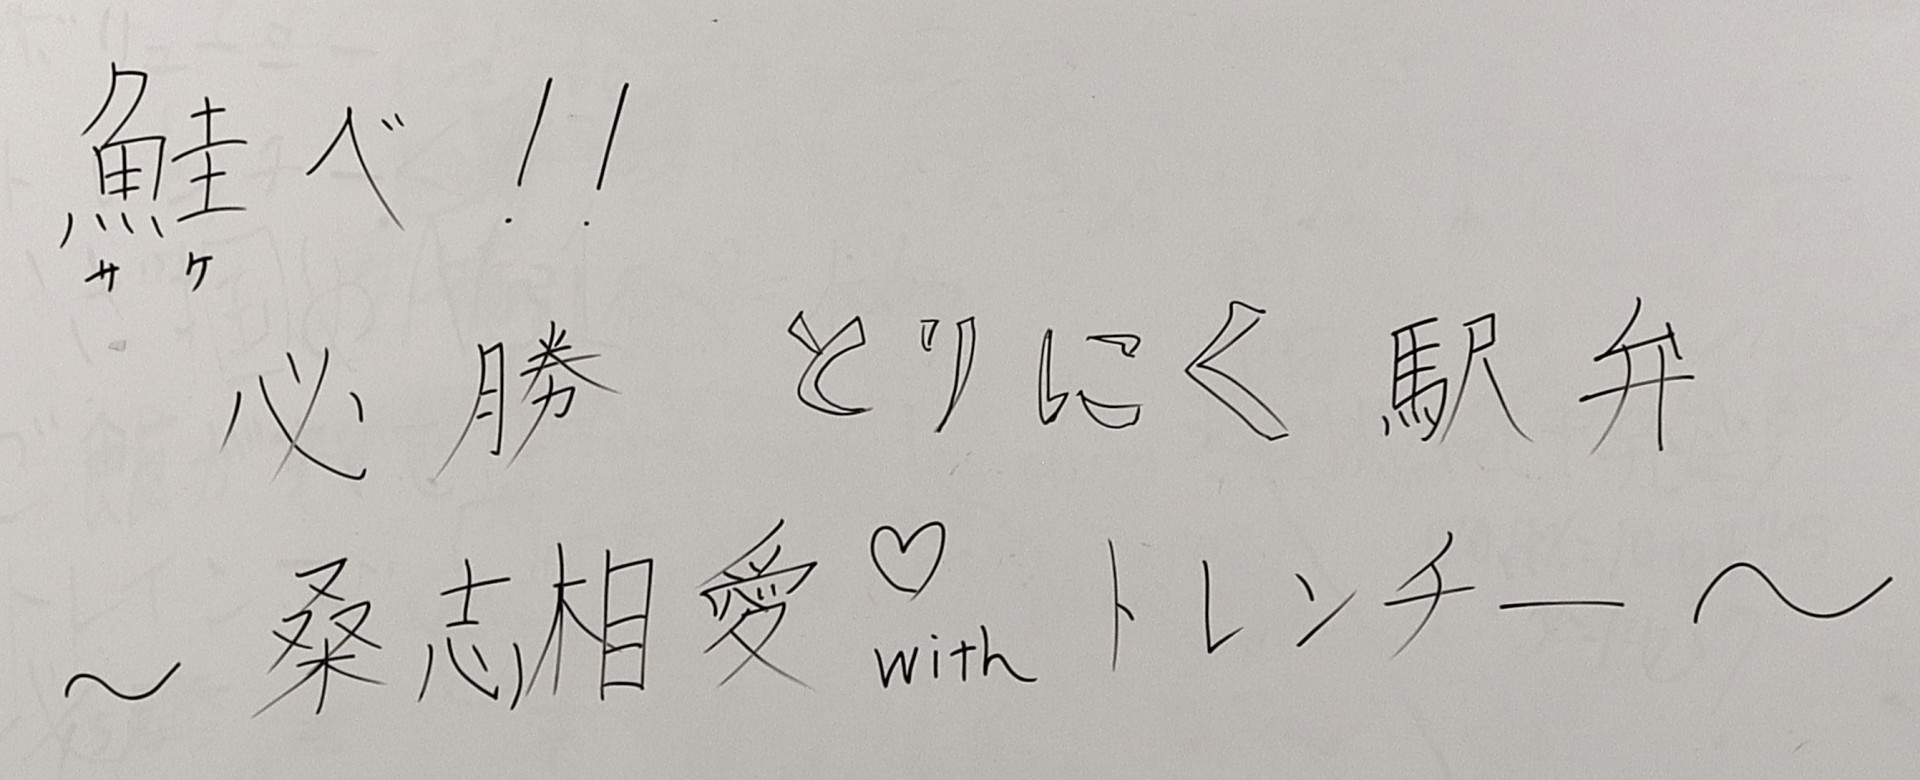 鮭べ!!
サケ
必勝 とりにく駅弁
～桑志相愛♡withトレンチー～